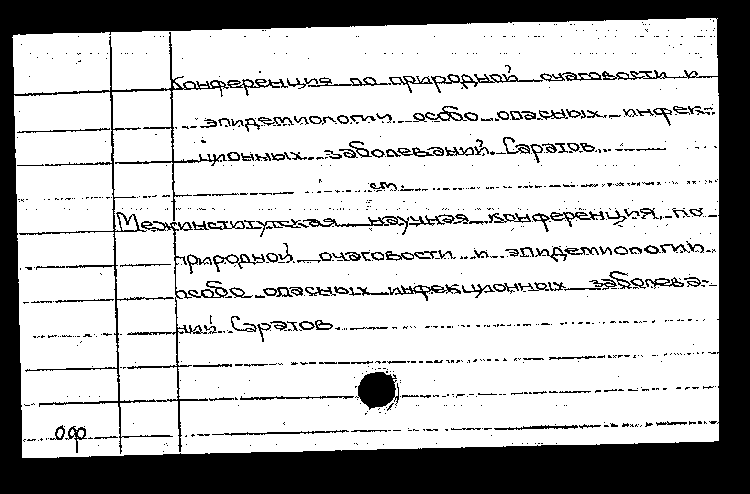 Конференция по природной очаговости и
эпидемиологии особо опасных инфек-
ционных заболеваний. Саратов.
см.
Межинститутская научная конференция по
природной очаговости и эпидемиологии
особо опасных инфекционных заболева-
ний. Саратов.
000